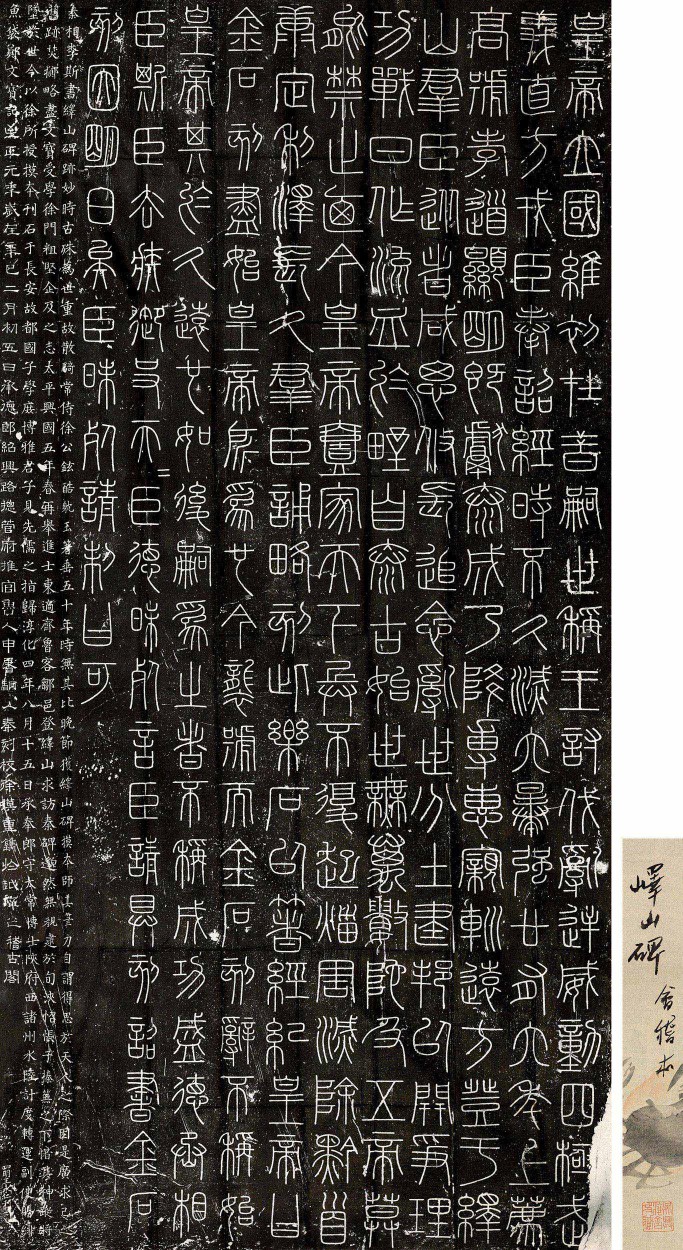 嶧山碑
會稽本
皇帝立國維初在昔嗣世稱王討伐亂逆威動四極武
義直方戎臣奉詔經時不久滅六暴強廿有六年上薦
高號孝道顯明既獻泰成乃降專惠親巡遠方登于繹
山羣臣從者咸思攸長追念亂世分土建邦以開爭理
功戰日作流血於野自泰古始世無萬數阤及五帝莫
能禁止廼今皇帝壹家天下兵不復起災害滅除黔首
康定利澤長久羣臣誦略刻此樂石以箸經紀皇帝曰
金石刻盡始皇帝所為也今襲號而金石刻辭不稱始
皇帝其於久遠也如後嗣為之者不稱成功盛德丞相
臣斯臣去疾御史夫臣德昧死言臣請具刻詔書金石
刻因明白矣臣昧死請制曰可
秦相李斯書繹山碑跡妙時古殊為世重故散騎常侍徐公鉉酷躭玉箸垂五十年時無其比晚節獲繹山碑摸本師其筆力自謂得思於天人之際因是廣求己之
舊跡焚擲略盡文寶受學徐門粗堅企及之志太平興國五年春再舉進士東適齊魯客鄒邑登繹山求訪秦碑邈然無覩逮於旬浹悵於榛蕪之下惜其神蹤將
墜於世今以徐所授摸本刊石于長安故都國子學庶博雅君子見先儒之指歸淳化四年八月十五日承奉郎守太常博士陝府西諸州水陸計度轉運副使賜緋
魚袋鄭文寶記至正元年歲在辛巳二月初五日承德郎紹興路總管府推官魯人申屠駉以秦刻校徐摸重鐫於越庠之稽古閣